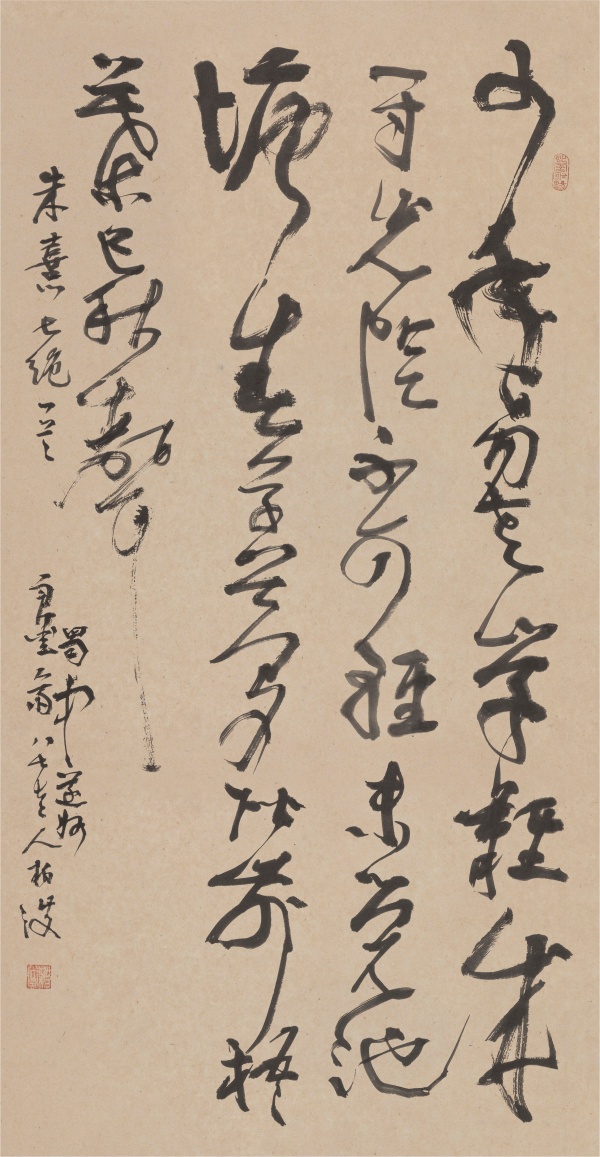 少年易老學難成
一寸光陰不可輕未覺池
塘春草夢階前梧
葉已秋聲
朱熹七絕一首
蜀中遂州
翁八七老人柏